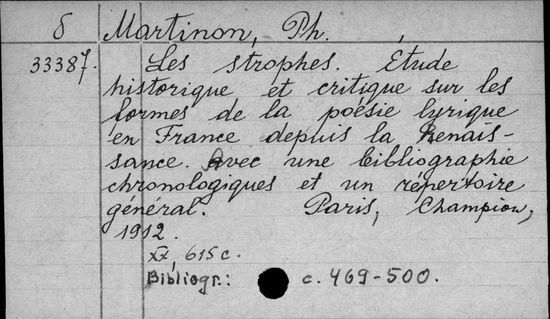 δ Martinon, Ph.
33387. Les strophes. Étude
historique et critique sur les
formes de la poésie lyrique
en France depuis la Renais-
sance. Avec une bibliographie
chronologiques et un répertoire
général. Paris, Champion,
1912.
XX, 615 c.
Bibliogr.: c. 469-500.